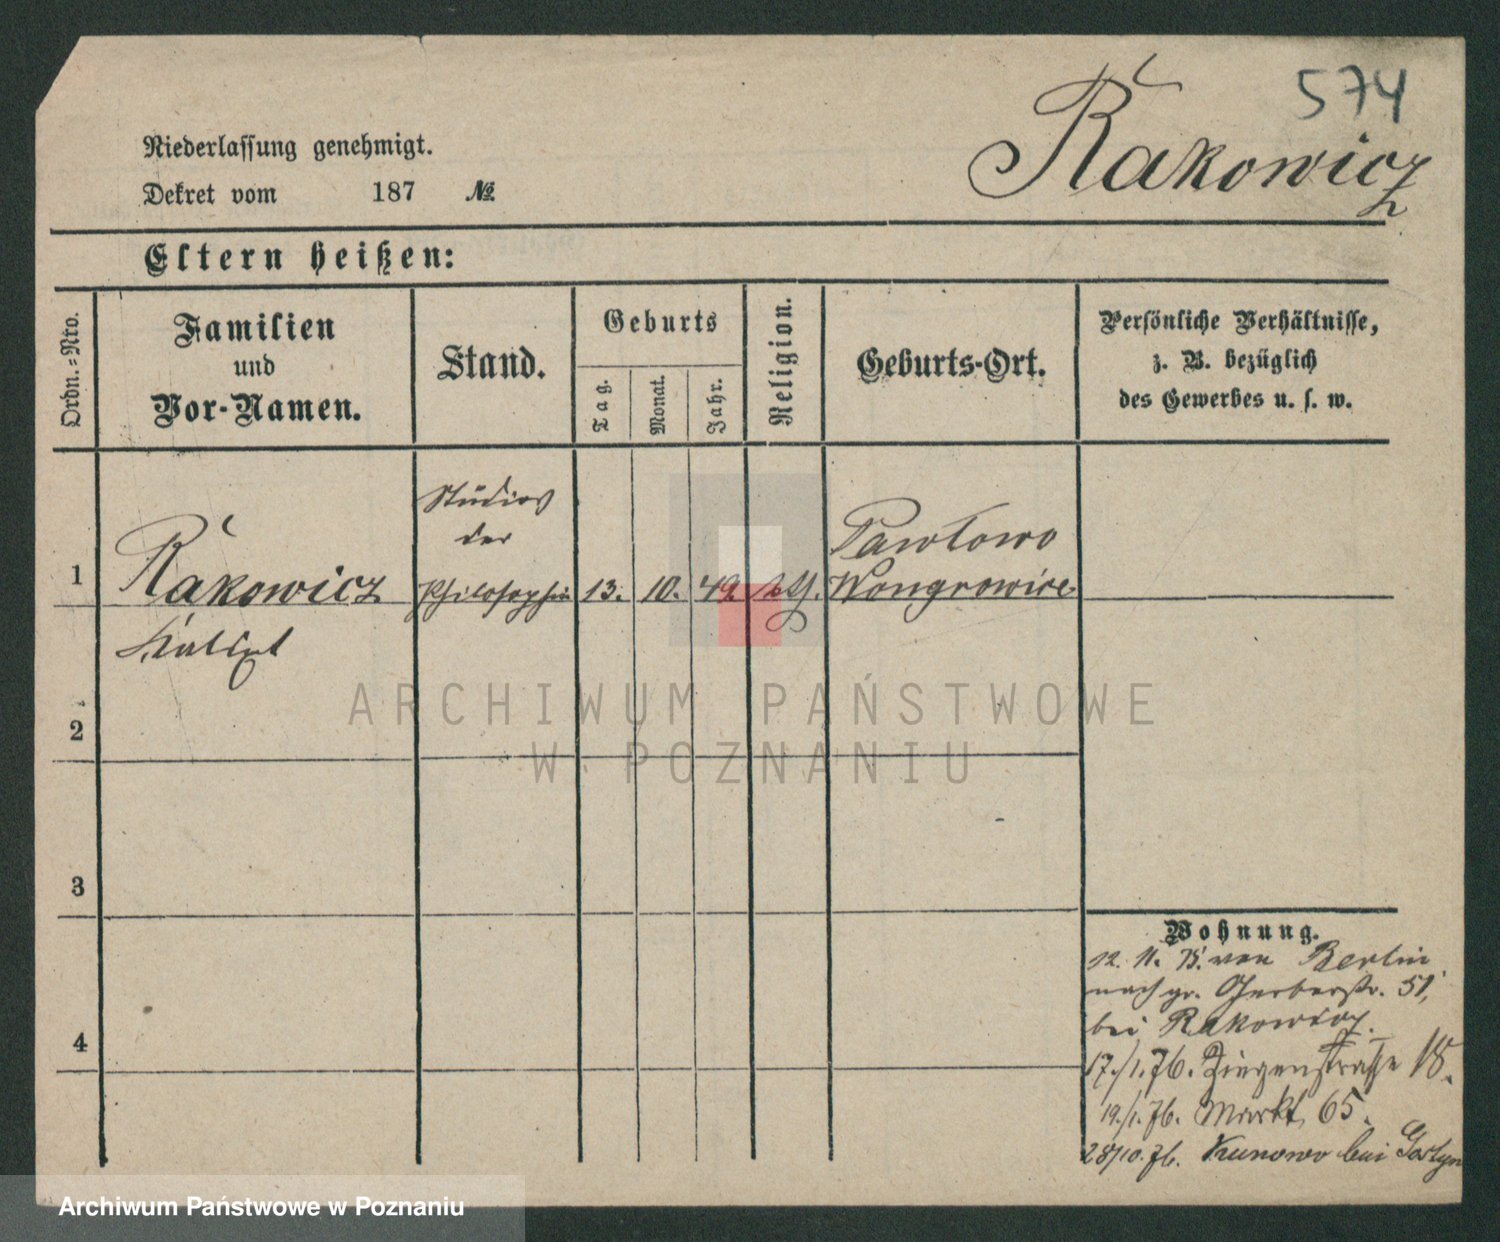 574
Rakowicz
Niederlassung genehmigt.
Dekret vom 187 №
Eltern heißen:
Ordn.-Nro.
Familien
und
Vor-Namen.
Stand.
Geburts
Tag.
Monat.
Jahr.
Religion.
Geburts-Ort.
Persönliche Verhältnisse,
z. B. bezüglich
des Gewerbes u. s. w.
Studios
der
Philosophie
1
Rakowicz
13. 10. 49.
Pawłowo
Wongrowice
2
3
4
ARCHIWUM PAŃSTWOWE
W POZNANIU
Wohnung.
12. 11. 75. von Berlin
nach gr. Gerberstr. 51,
bei Rakowicz.
17./1.76. Ziegenstraße 18.
19./1.76. Markt 65.
28/10.76. Kunowo bei Gostyn
Archiwum Państwowe w Poznaniu